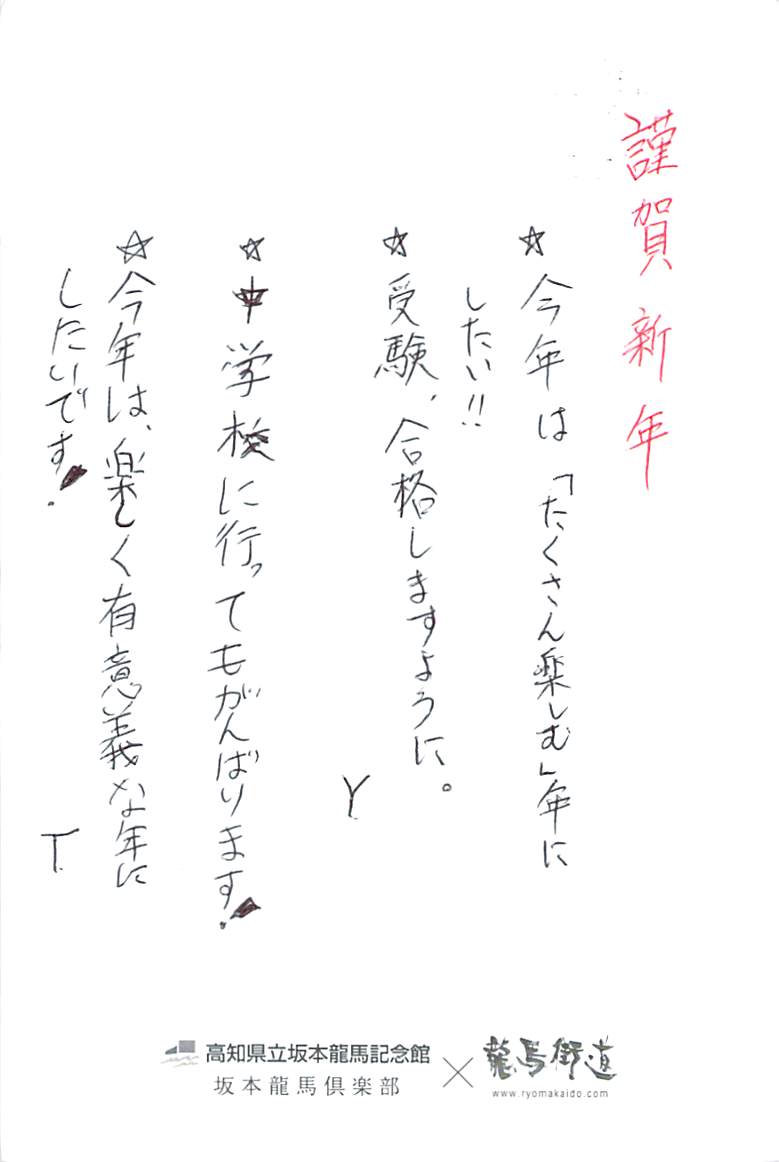 謹賀新年
☆今年は「たくさん楽しむ」年に
したい!!
☆受験、合格しますように。
Y
☆中学校に行ってもがんばります!
☆今年は、楽しく有意義な年に
したいです!
T
高知県立坂本龍馬記念館
坂本龍馬倶楽部
×
龍馬街道
www.ryomakaido.com